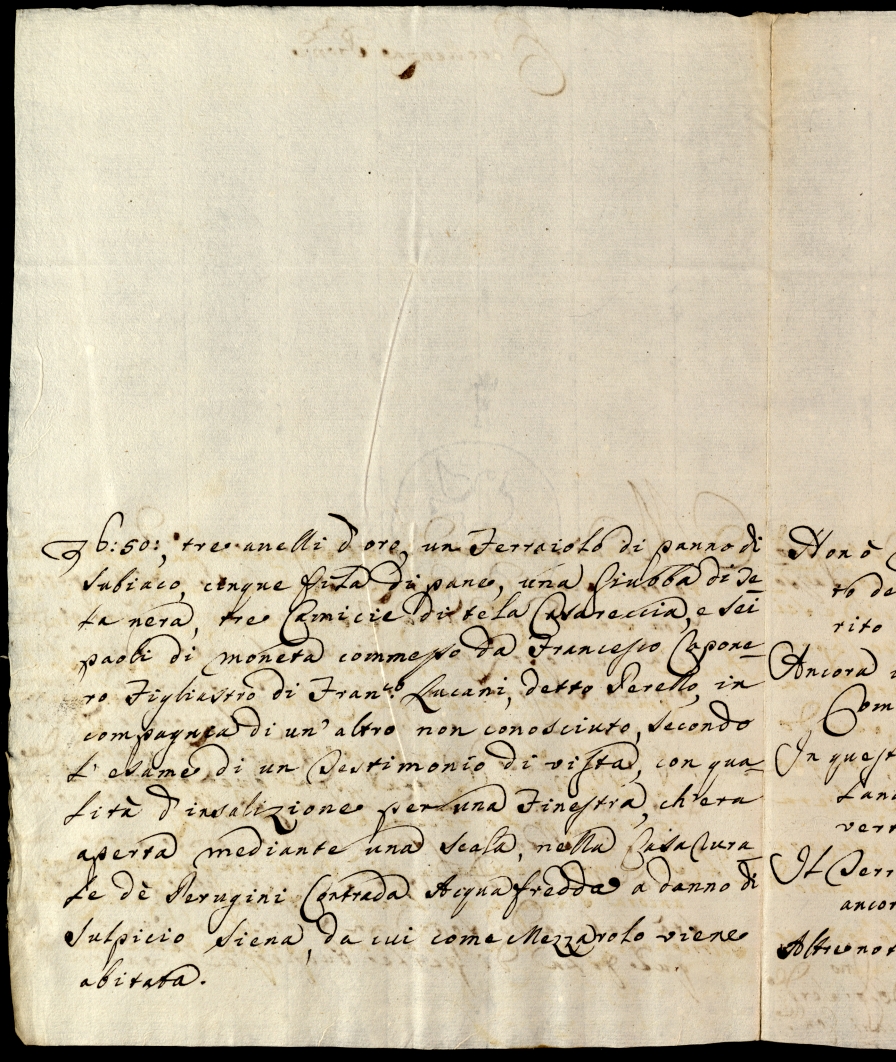 6:50:, tre anelli d'oro, un Ferraiolo di panno di
Subiaco, cinque fila di pane, una Giubba di Se=
ta nera, tre Camicie di tela Casareccia, e Sei
paoli di moneta commesso da Francesco Capone=
ro Figliastro di Fran.co Lucani, detto Perello, in
compagnia di un' altro non conosciuto, Secondo
L' esame di un Testimonio di vista, con qua=
lità d' insalizione per una Finestra, ch'era
aperta mediante una Scala, nella Casa Rura=
le dè Perugini Contrada Acqua fredda a danno di
Sulpicio Siena, da cui come Mezzarolo viene
abitata.
Non è
to de
rito
Ancora
Com
In quest
tan
verr
Il Serr
ancor
Altre not